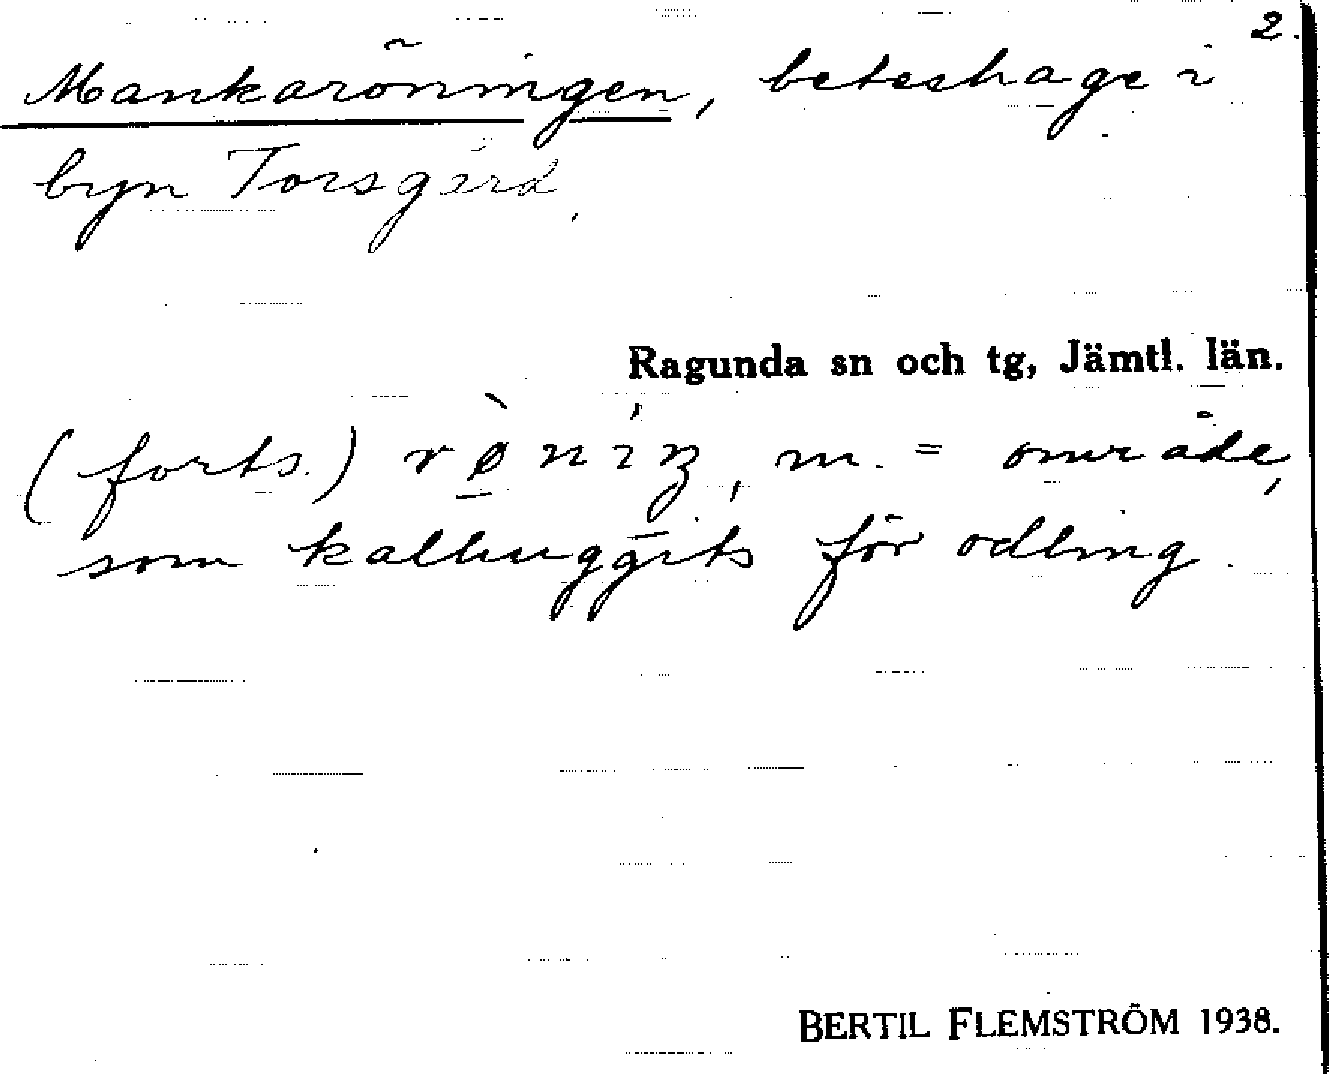 2.
Mankaröningen, beteshage i
byn Torsgård.
Ragunda sn och tg, Jämtl. län.
(forts.) rø̀níŋ, m. = område,
som kalhuggits för odling.
BERTIL FLEMSTRÖM 1938.